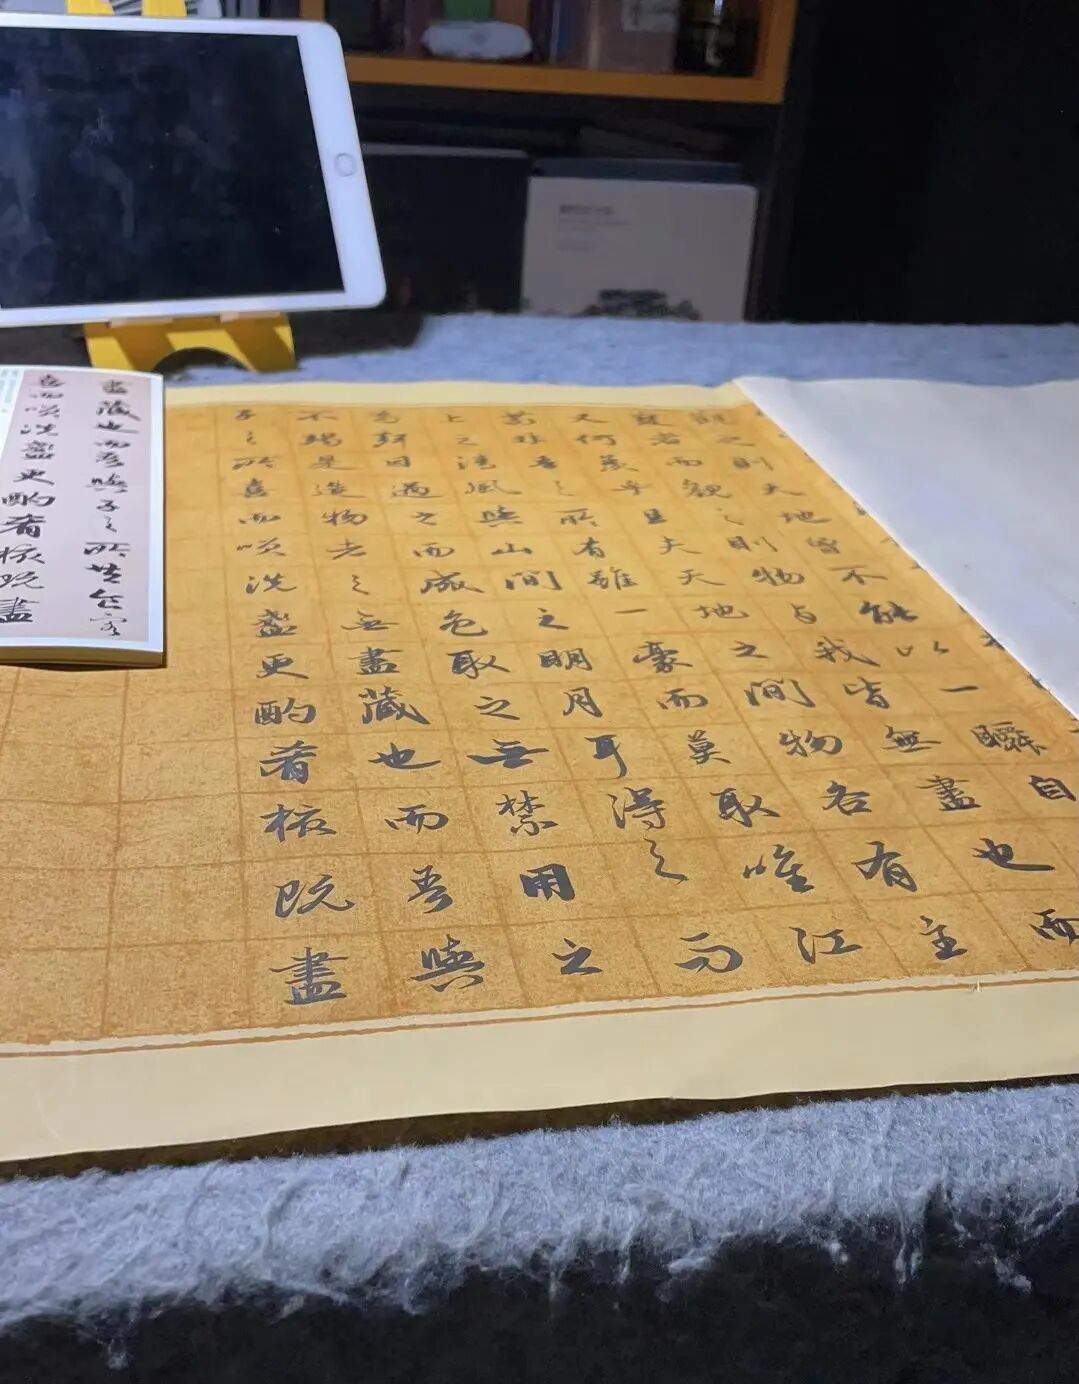 觀之則天地曾不能以一瞬自
變者而觀之則物与我皆無盡也而
又何羨乎且夫天地之間物各有主
苟非吾之所有雖一豪而莫取唯江
上之清風與山間之明月耳得之而
為聲目遇之而成色取之無禁用之
不竭是造物者之無盡藏也而吾與
子之所喜而咲洗盞更酌肴核既盡
盡藏也而吾與子之所共食客
喜而咲洗盞更酌肴核既盡